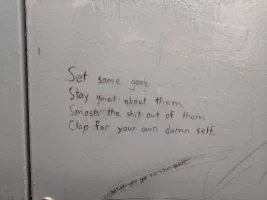 Set some goals.
Stay quiet about them.
Smash the shit out of them.
Clap for your own damn self.